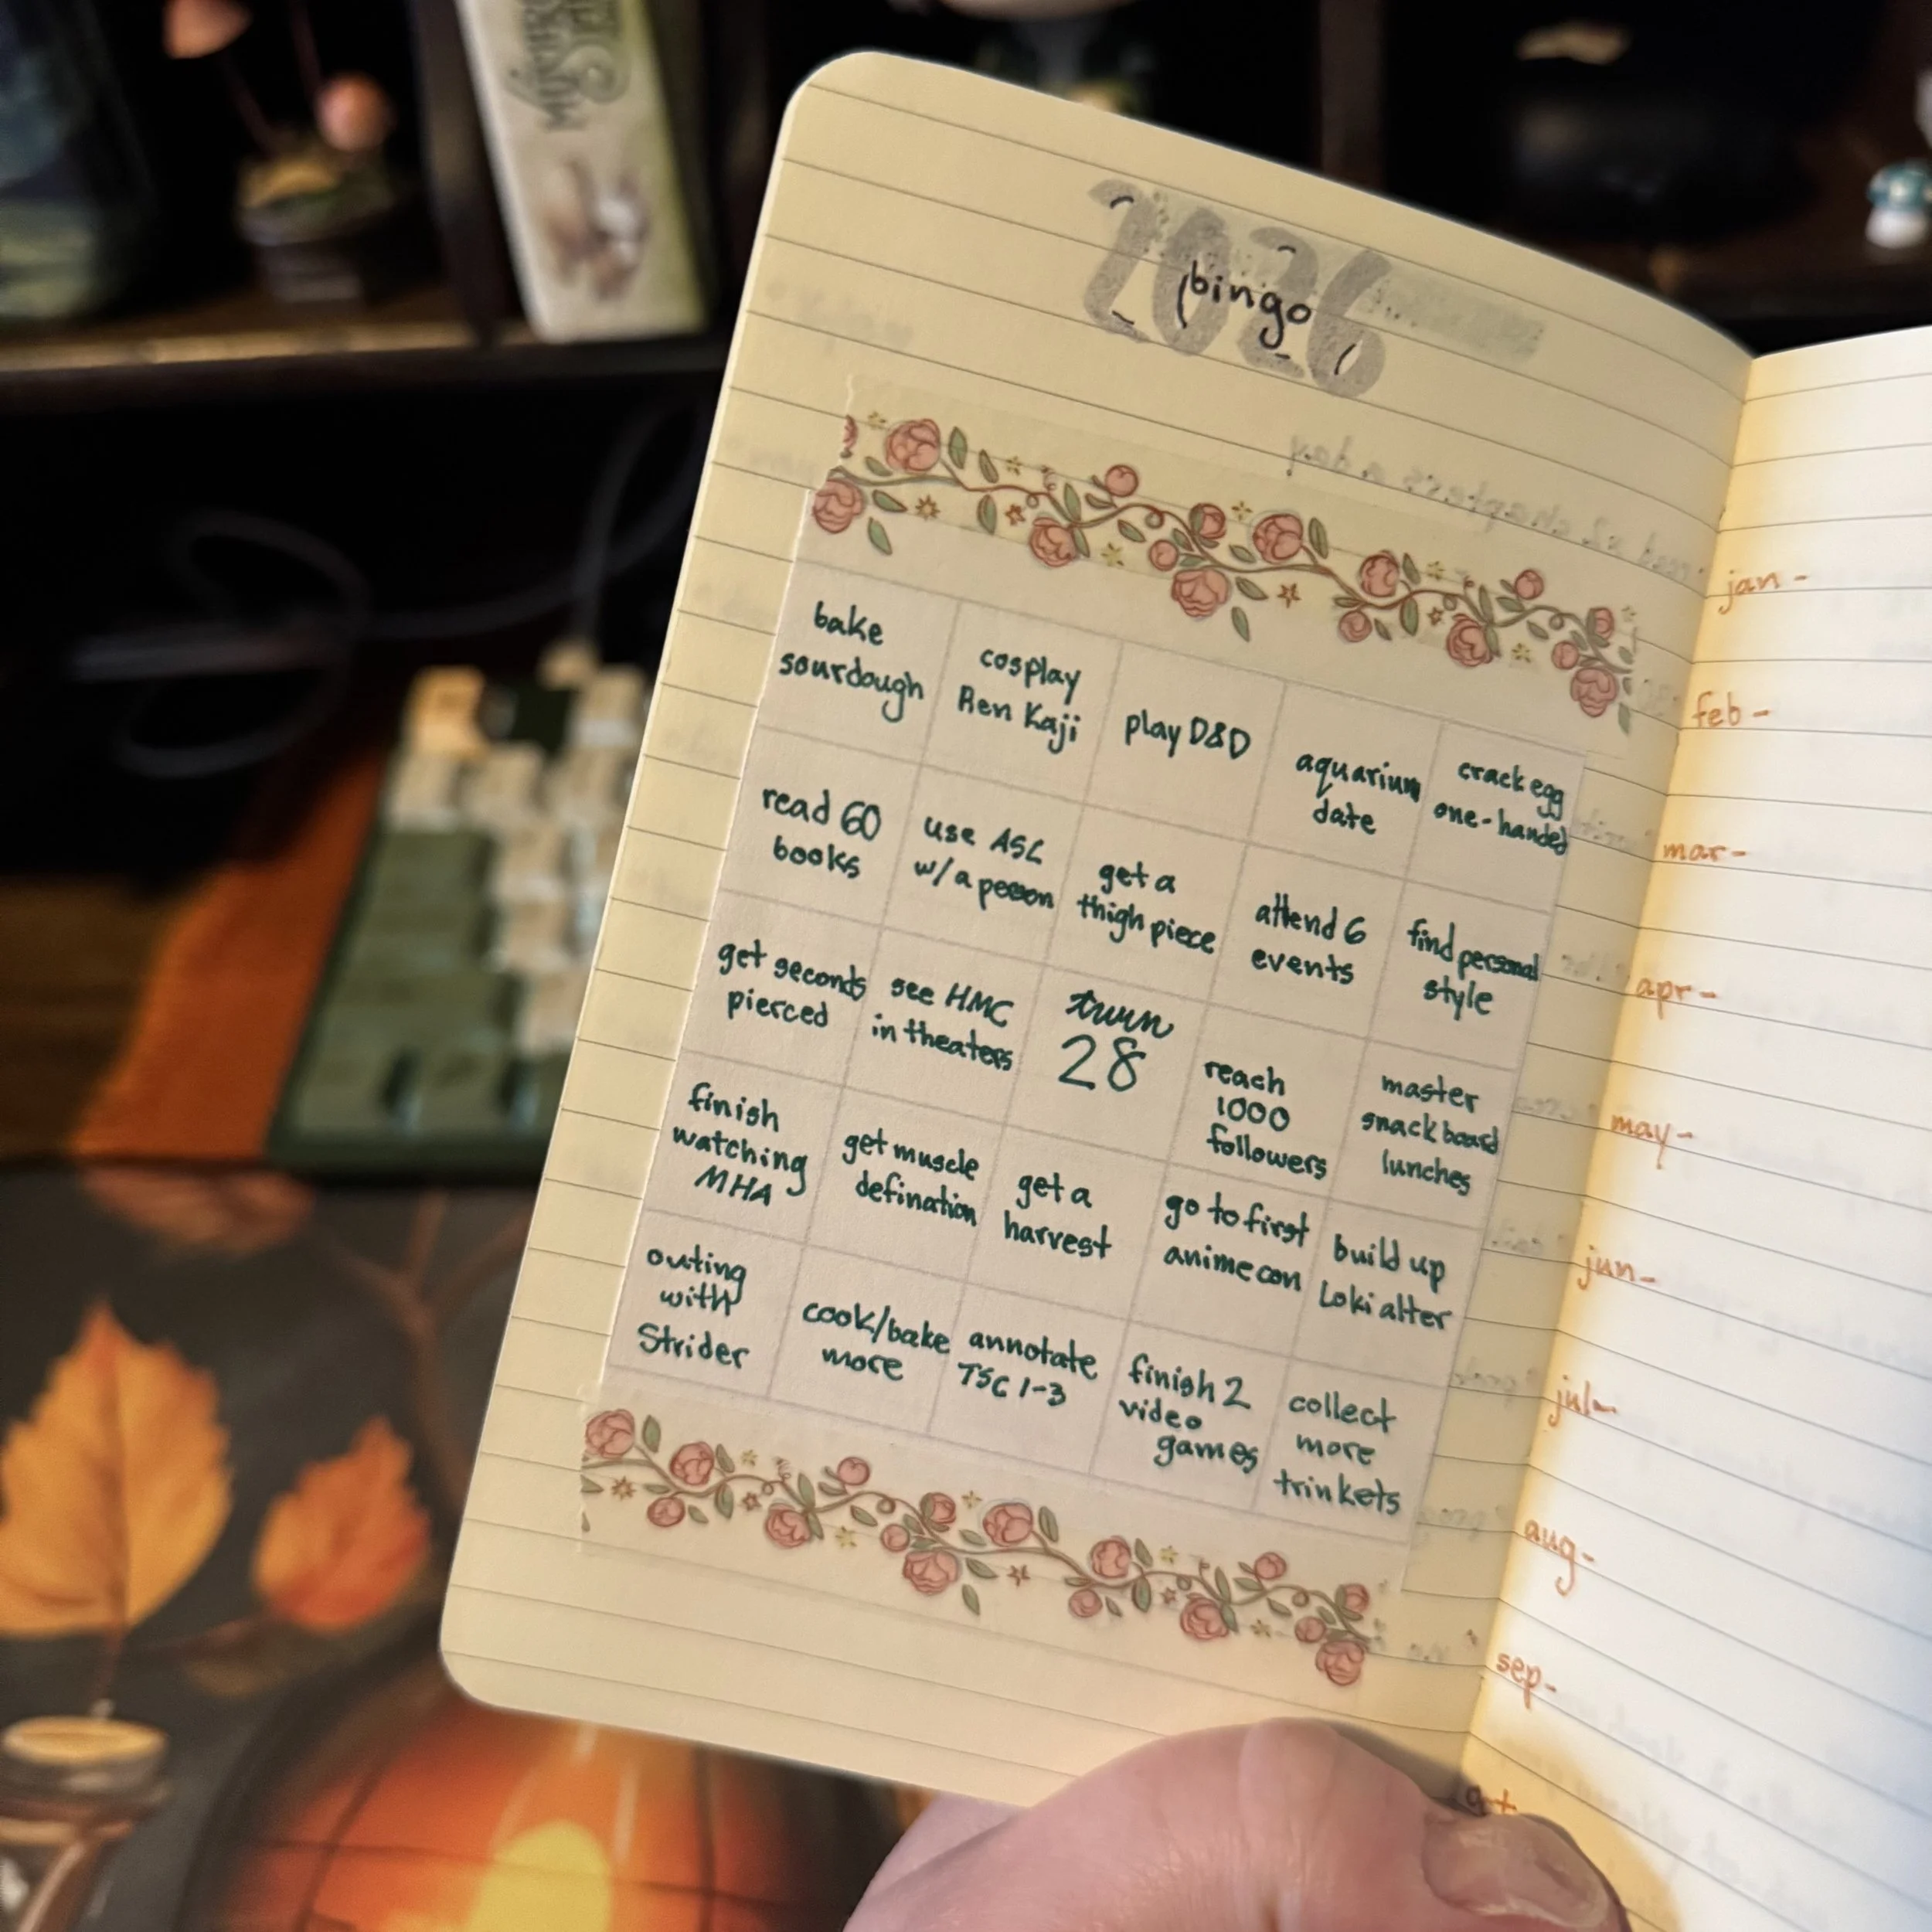 2026
bingo
bake
sourdough
cosplay
Ren Kaji
play D&D
aquarium
date
crack egg
one-handed
read 60
books
use ASL
w/a person
get a
thigh piece
attend 6
events
find personal
style
get seconds
pierced
see HMC
in theaters
turn
28
reach
1000
followers
master
snack board
lunches
finish
watching
MHA
get muscle
defination
get a
harvest
go to first
anime con
build up
Loki alter
outing
with
Strider
cook/bake
more
annotate
TSC 1-3
finish 2
video
games
collect
more
trinkets
jan-
feb-
mar-
apr-
may-
jun-
jul-
aug-
sep-